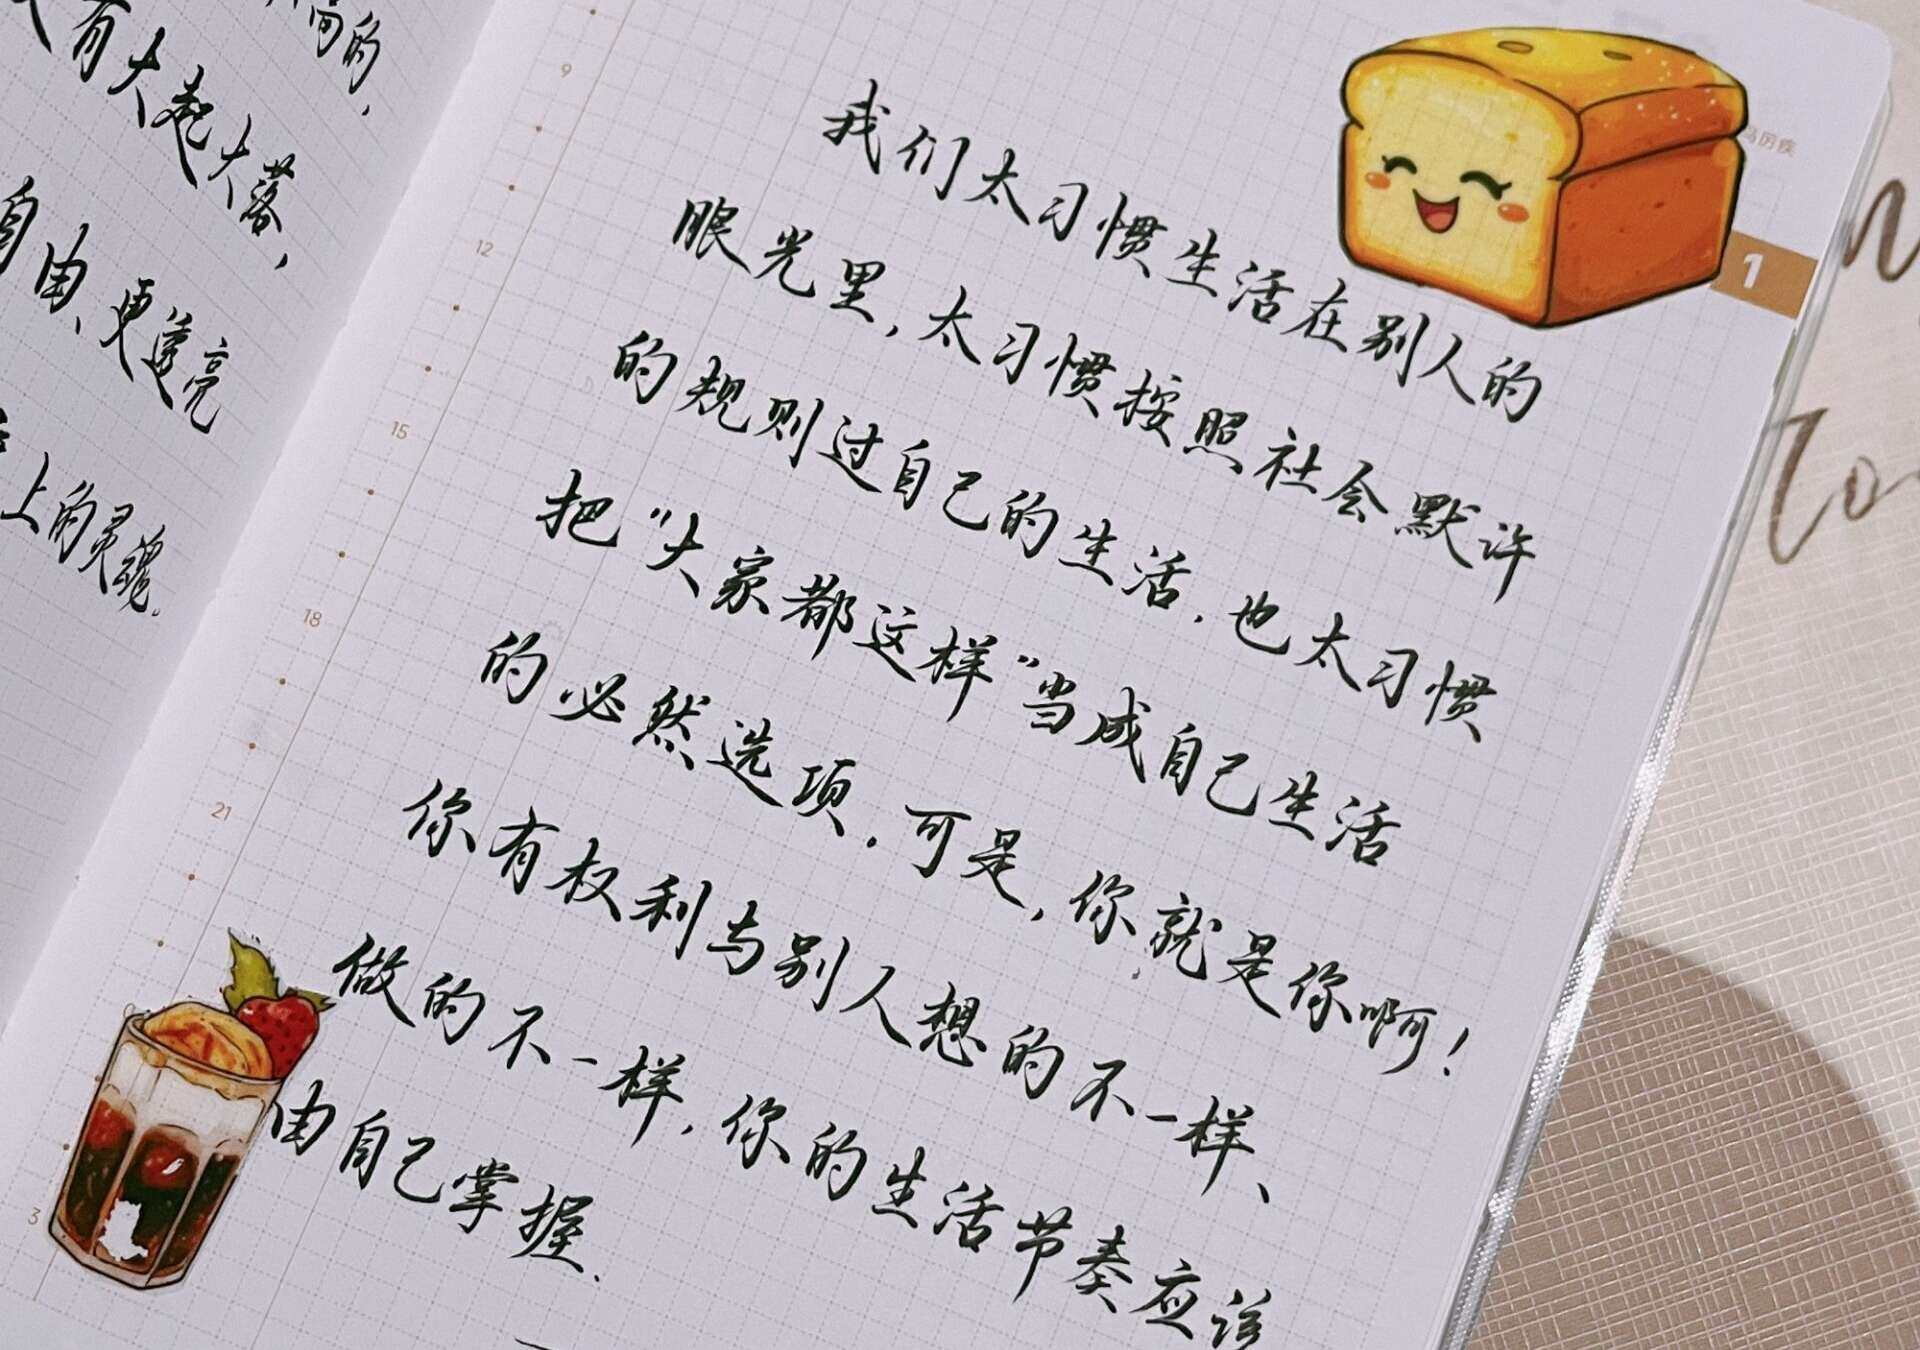 间的.
有大起大落,
自由、更遼亮
上的灵魂.
9
12
15
18
21
3
1
我们太习惯生活在别人的
眼光里,太习惯按照社会默许
的规则过自己的生活.也太习惯
把"大家都这样"当成自己生活
的必然选项.可是,你就是你啊!
你有权利与别人想的不一样、
做的不一样,你的生活节奏应该
由自己掌握.